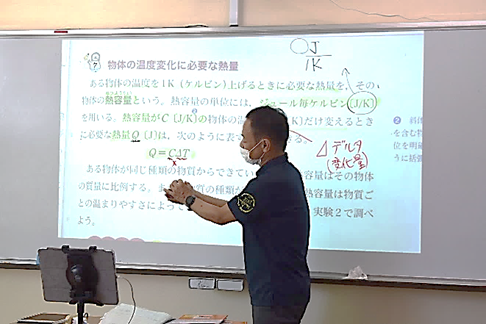 物体の温度変化に必要な熱量
ある物体の温度を1K(ケルビン)上げるときに必要な熱量を、その
物体の熱容量という。熱容量の単位には、ジュール毎ケルビン(J/K)
を用いる。熱容量がC(J/K)の物体の K)だけ変えるとき
に必要な熱量Q(J)は、次のように表 る。
Q=CΔT
ある物体が同じ種類の物質からできてい 容量はその物体
の質量に比例する。ま 質の種類が 熱容量は物質ご
との温まりやすさによって 実験2で調べ
よう。
○J
1K
Δデルタ
(変化量)